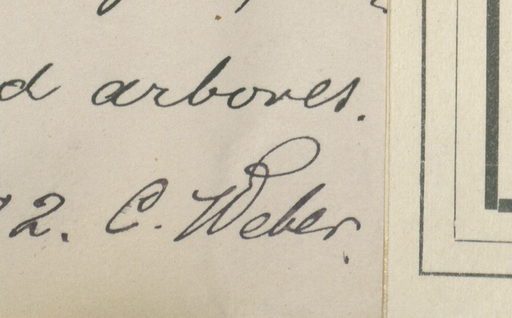 d arbores.
2. C. Weber.